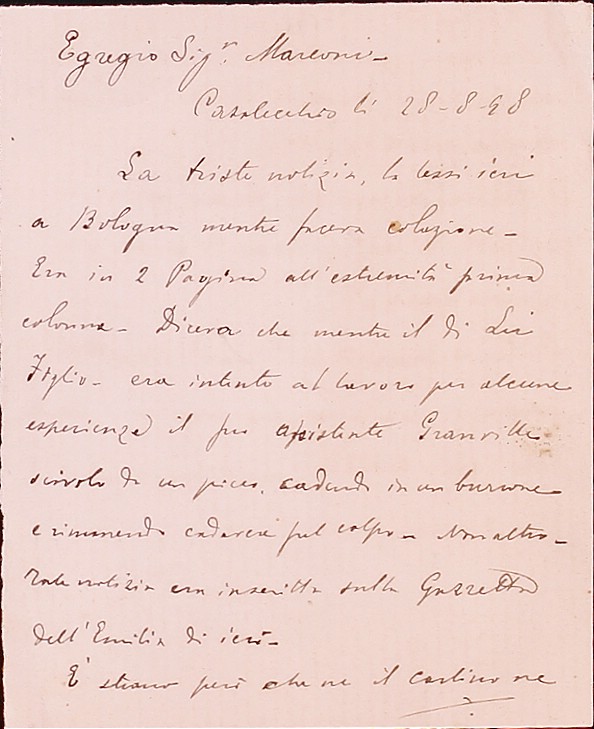 Egregio Sigr. Marconi-
Casalecchio li 28-8-98
La triste notizia, la lessi ieri
a Bologna mentre facevo colazione-
Era in 2 Pagina all'estremità prima
colonna- Diceva che mentre il di Lei
Figlio- era intento al lavoro per alcune
esperienze il suo assistente Granville
scivolò da un picco, cadendo in un burrone
e rimanendo cadavere sul colpo- Non altro-
Tale notizia era inserita sulla Gazzetta
dell'Emilia di ieri-
È strano però che ne il Carlino ne